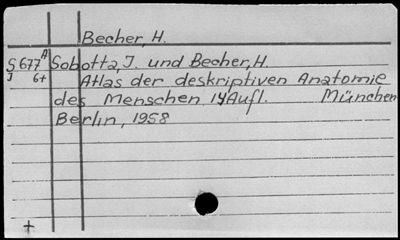 Becher, H.
S677A Sobotta, J. und Becher, H.
I 6+ Atlas der deskriptiven Anatomie
des Menschen 14Aufl. München
Berlin, 1958
+